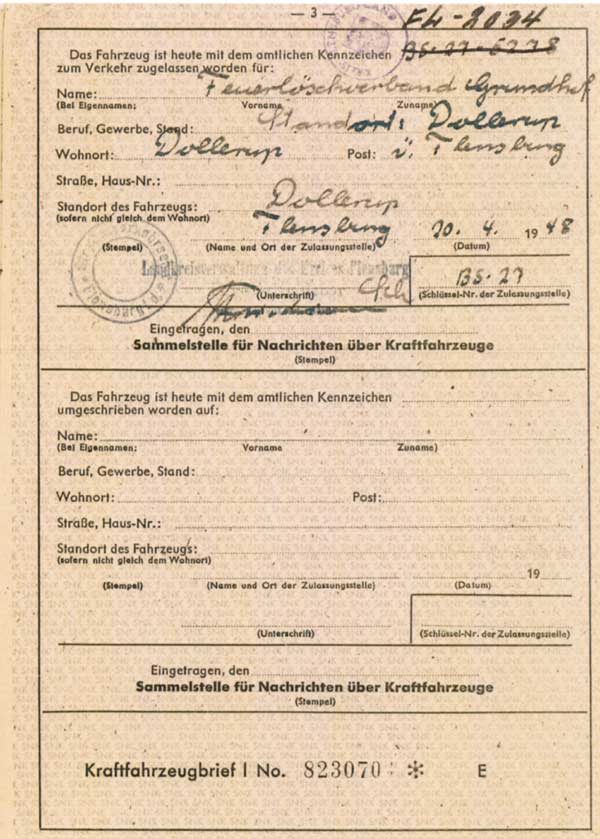 — 3 —
FL-2034
Das Fahrzeug ist heute mit dem amtlichen Kennzeichen BS-27-6278
zum Verkehr zugelassen worden für:
Name: Feuerlöschverband Grundhof
(Bei Eigennamen; Vorname Zuname)
Beruf, Gewerbe, Stand: Standort: Dollerup
Wohnort: Dollerup Post: ü. Flensburg
Straße, Haus-Nr.:
Standort des Fahrzeugs: Dollerup
(sofern nicht gleich dem Wohnort)
Flensburg 30. 4. 1948
(Stempel) (Name und Ort der Zulassungsstelle) (Datum)
Landkreisverwaltung des Kreises Flensburg
BS-27
(Unterschrift) (Schlüssel-Nr. der Zulassungsstelle)
Eingetragen, den
Sammelstelle für Nachrichten über Kraftfahrzeuge
(Stempel)
Das Fahrzeug ist heute mit dem amtlichen Kennzeichen
umgeschrieben worden auf:
Name:
(Bei Eigennamen; Vorname Zuname)
Beruf, Gewerbe, Stand:
Wohnort: Post:
Straße, Haus-Nr.:
Standort des Fahrzeugs:
(sofern nicht gleich dem Wohnort)
19
(Stempel) (Name und Ort der Zulassungsstelle) (Datum)
(Unterschrift) (Schlüssel-Nr. der Zulassungsstelle)
Eingetragen, den
Sammelstelle für Nachrichten über Kraftfahrzeuge
(Stempel)
Kraftfahrzeugbrief I No. 823070 * E